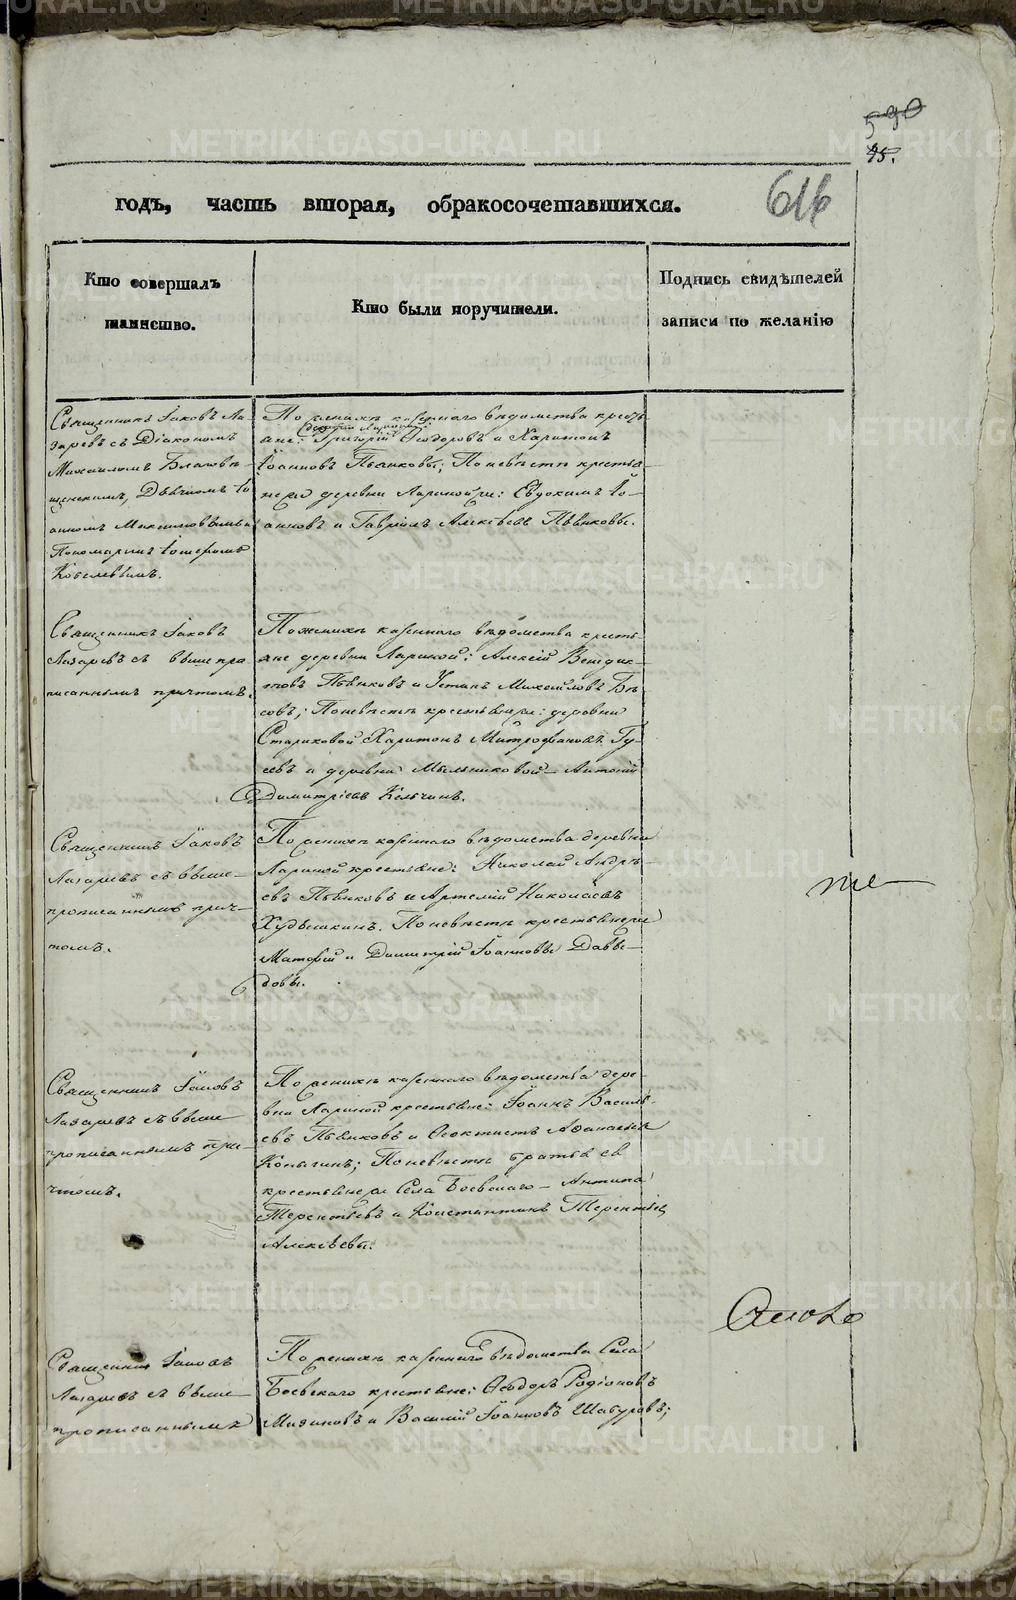 590
45.
616
годъ, часть вторая, обракосочетавшихся.
Кто совершалъ
таинство.
Кто были поручители.
Подпись свидѣтелей
записи по желанію
Священникъ Іаковъ Ла-
заревъ съ Діакономъ
Михаиломъ Благовѣ-
щенскимъ, Дьячкомъ Іо-
анномъ Максимовымъ и
Пономаремъ
По женихѣ казеннаго вѣдомства кресть-
деревни Лариной
яне: Григорій Ѳеодоровъ и Харитонъ
Іоанновъ Пьянковы; По невѣстѣ крестья-
не деревни Лариной же: Евдокимъ Іо-
анновъ и Гавріилъ Алексѣевъ Пьянковы.
Священникъ Іаковъ
Лазаревъ съ вышепро
писаннымъ причтомъ.
По женихѣ казеннаго вѣдомства кресть-
яне деревни Лариной: Алексій Венедик-
товъ Пьянковъ и Устинъ Михайловъ Бѣ
совъ; По невѣстѣ крестьяне же: деревни
Стариковой Харитонъ Митрофановъ Гу-
севъ и деревни Мыльниковой Антоній
Димитріевъ Кельчинъ.
Священникъ Іаковъ
Лазаревъ съ выше-
прописаннымъ прич-
томъ.
По женихѣ казеннаго вѣдомства деревни
Лариной крестьяне: Николай Андрѣ-
евъ Пьянковъ и Артемій Николаевъ
Худышкинъ. По невѣстѣ крестьяне же
и Димитрій Іоанновы Давы-
довы.
же
Священникъ Іаковъ
Лазаревъ съ выше
прописаннымъ при-
чтомъ.
По женихѣ казеннаго вѣдомства дере-
вни Лариной крестьяне: Іоаннъ Василь-
евъ Пьянковъ и Ѳеоктистъ Аѳанасьевъ
Копыгинъ; По невѣстѣ братья ея
крестьяне же Села Боевскаго Антипа
Терентьевъ и Константинъ Терентьевъ
Алексѣевы.
Священникъ Іаковъ
Лазаревъ съ выше
прописаннымъ
По женихѣ казеннаго вѣдомства Села
Боевскаго крестьяне: Ѳеодоръ Родіоновъ
Мизиновъ и Василій Іоанновъ Шабуровъ;
METRIKI.GASO-URAL.RU